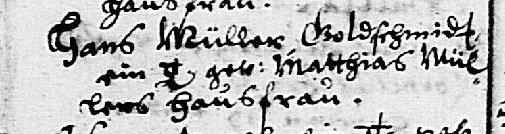 hausfrau.
Hans Müller, Goldschmidt,
ein T. gev: Matthias Mül
lers Hausfrau.